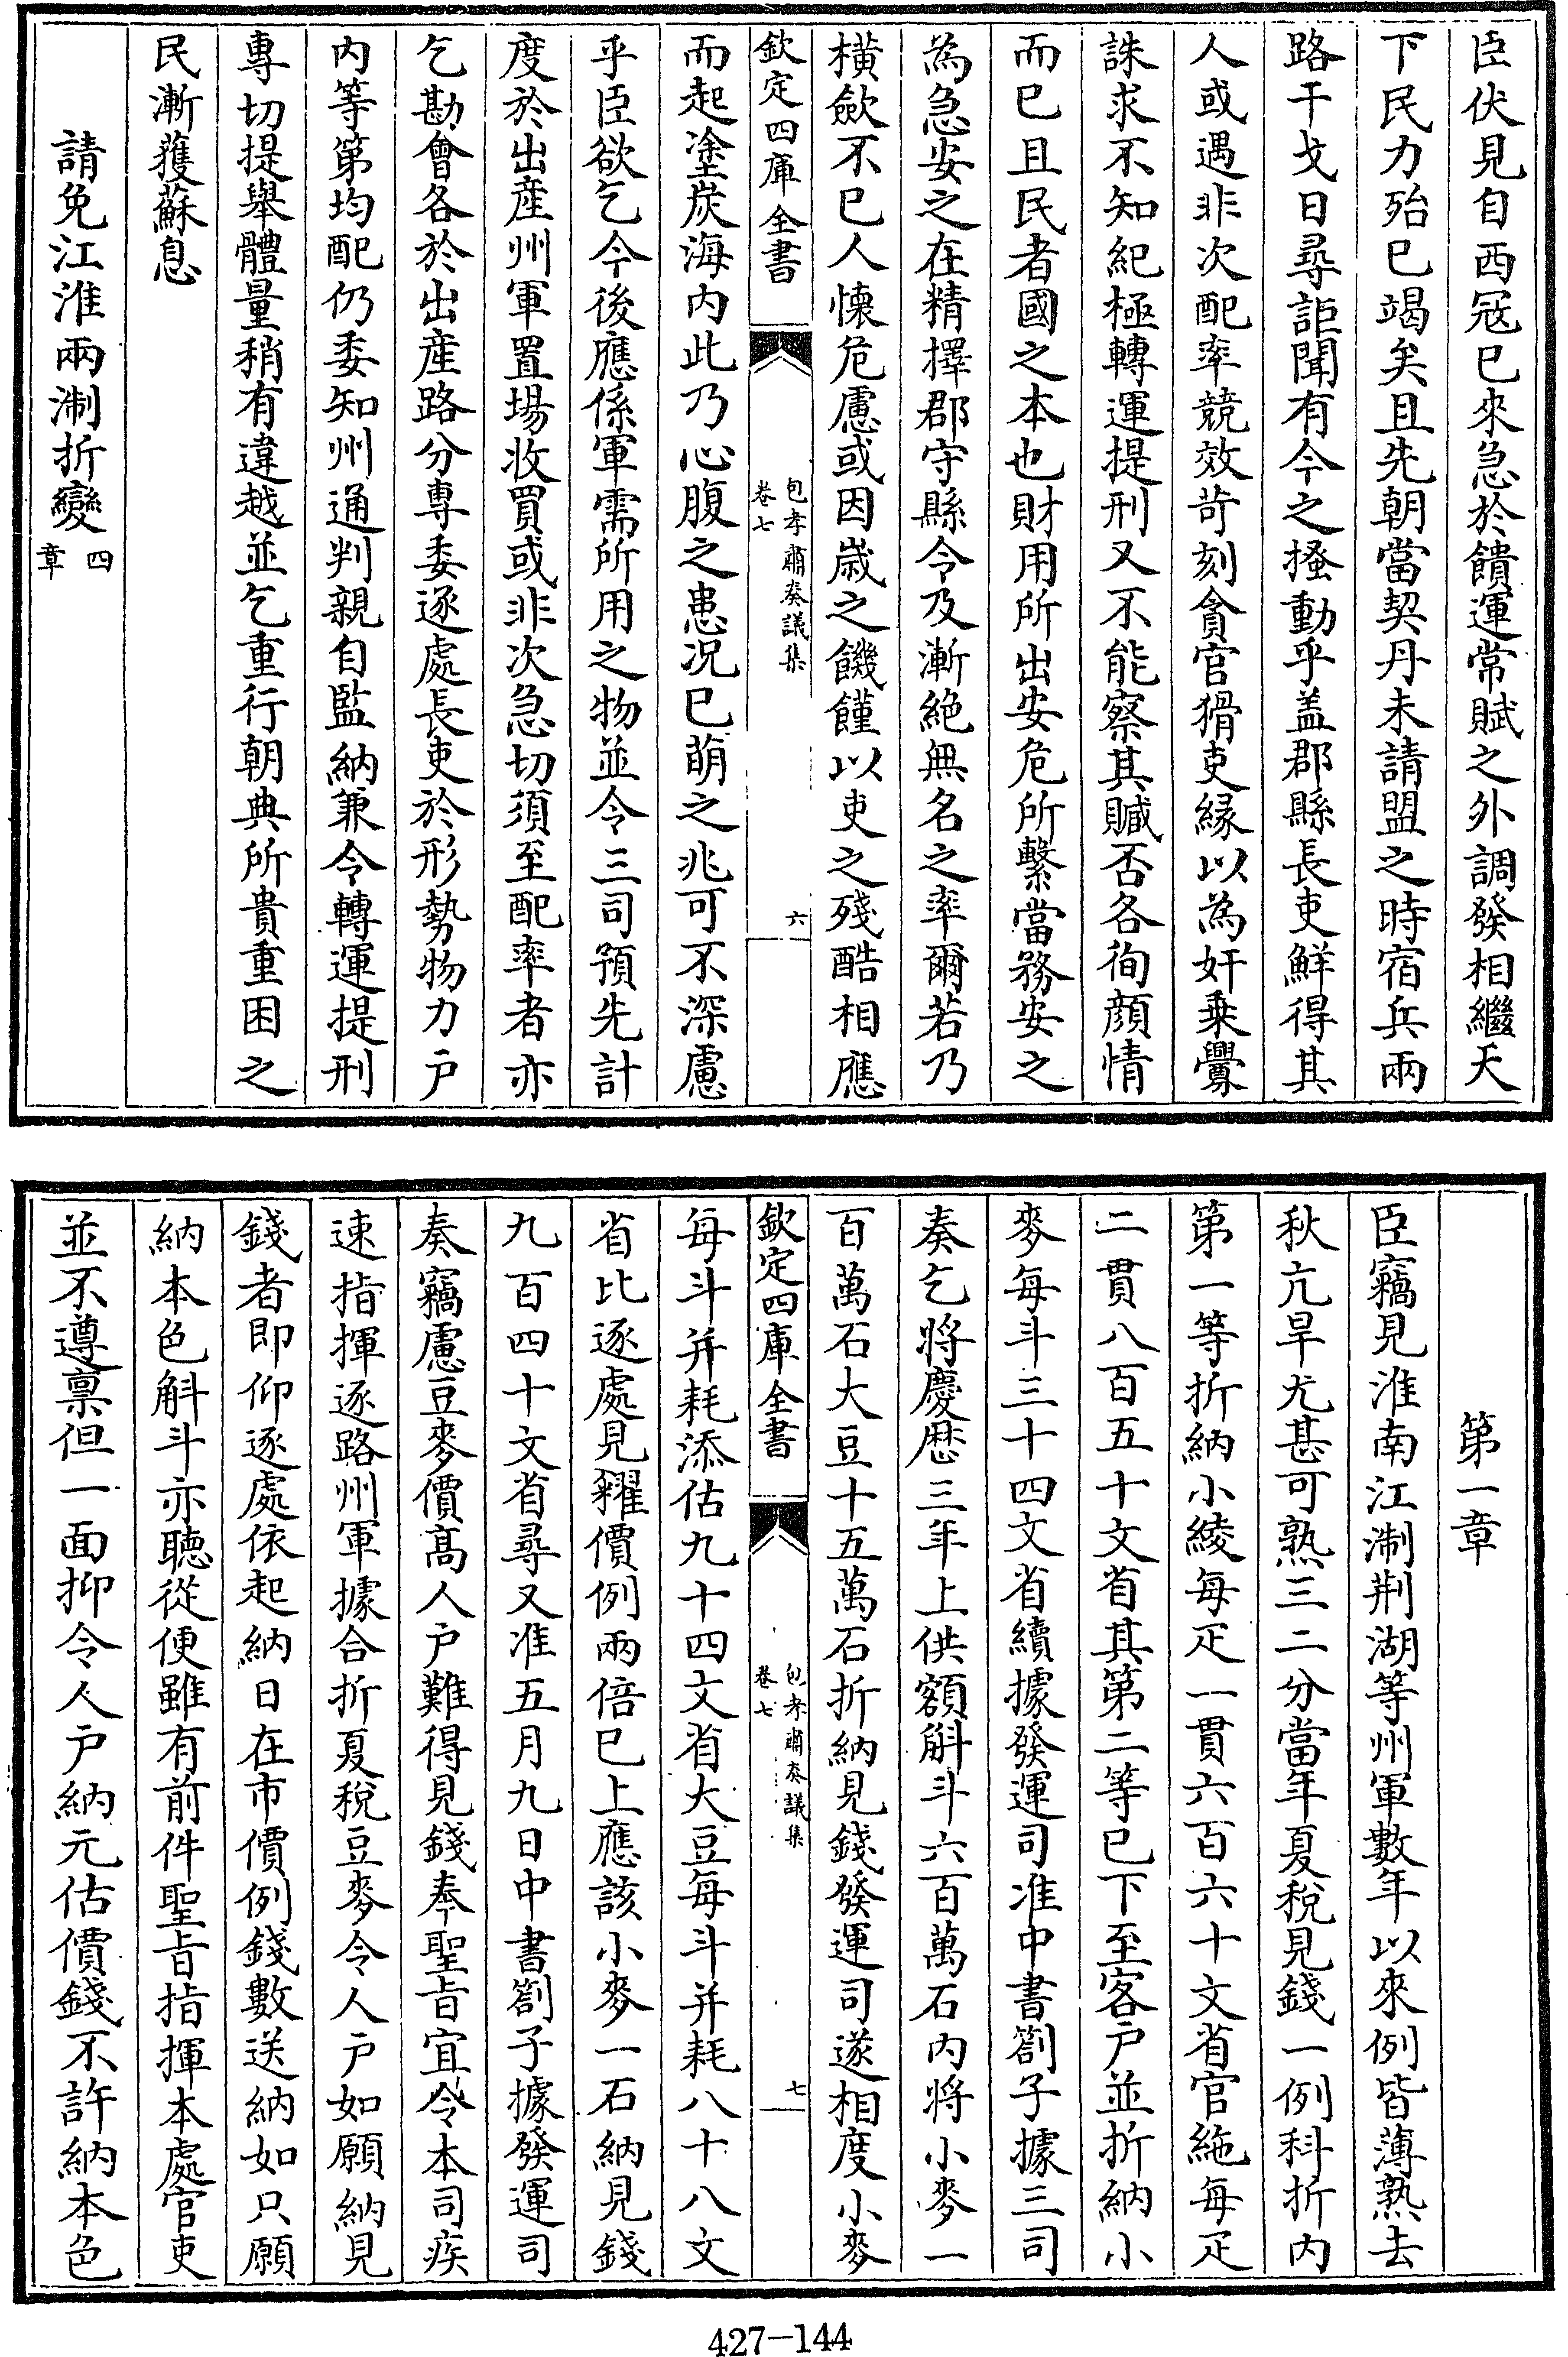 臣伏見自西冦已來急於饋運常賦之外調發相繼天
下民力殆已竭矣且先朝當契丹未請盟之時宿兵兩
路干戈日尋詎聞有今之搔動乎盖郡縣長吏鮮得其
人或遇非次配率競效苛刻貪官猾吏緣以為奸乗釁
誅求不知紀極轉運提刑又不能察其贓否各徇顔情
而已且民者國之本也財用所出安危所繫當務安之
為急安之在精擇郡守縣令及漸絶無名之率爾若乃
橫歛不已人懷危慮或因歳之饑饉以吏之殘酷相應
欽定四庫全書
包孝肅奏議集
卷七
六
而起塗炭海内此乃心腹之患况已萌之兆可不深慮
乎臣欲乞今後應係軍需所用之物並令三司預先計
度於出産州軍置場收買或非次急切須至配率者亦
乞勘會各於出産路分專委逐處長吏於形勢物力户
内等第均配仍委知州通判親自監納兼令轉運提刑
專切提舉體量稍有違越並乞重行朝典所貴重困之
民漸獲蘇息
請免江淮兩淛折變四章
第一章
臣竊見淮南江淛荆湖等州軍數年以來例皆薄熟去
秋亢旱尤甚可熟三二分當年夏稅見錢一例科折内
第一等折納小綾每疋一貫六百六十文省官絁每疋
二貫八百五十文省其第二等已下至客户並折納小
麥每斗三十四文省續據發運司准中書劄子據三司
奏乞將慶厯三年上供額斛斗六百萬石内將小麥一
百萬石大豆十五萬石折納見錢發運司遂相度小麥
欽定四庫全書
包孝肅奏議集
卷七
七
每斗并耗添估九十四文省大豆每斗并耗八十八文
省比逐處見糴價例兩倍已上應該小麥一石納見錢
九百四十文省尋又准五月九日中書劄子據發運司
奏竊慮豆麥價髙人户難得見錢奉聖旨宜令本司疾
速指揮逐路州軍據合折夏稅豆麥令人户如願納見
錢者即仰逐處依起納日在市價例錢數送納如只願
納本色斛斗亦聽從便雖有前件聖旨指揮本處官吏
並不遵稟但一面抑令人户納元估價錢不許納本色
427-144